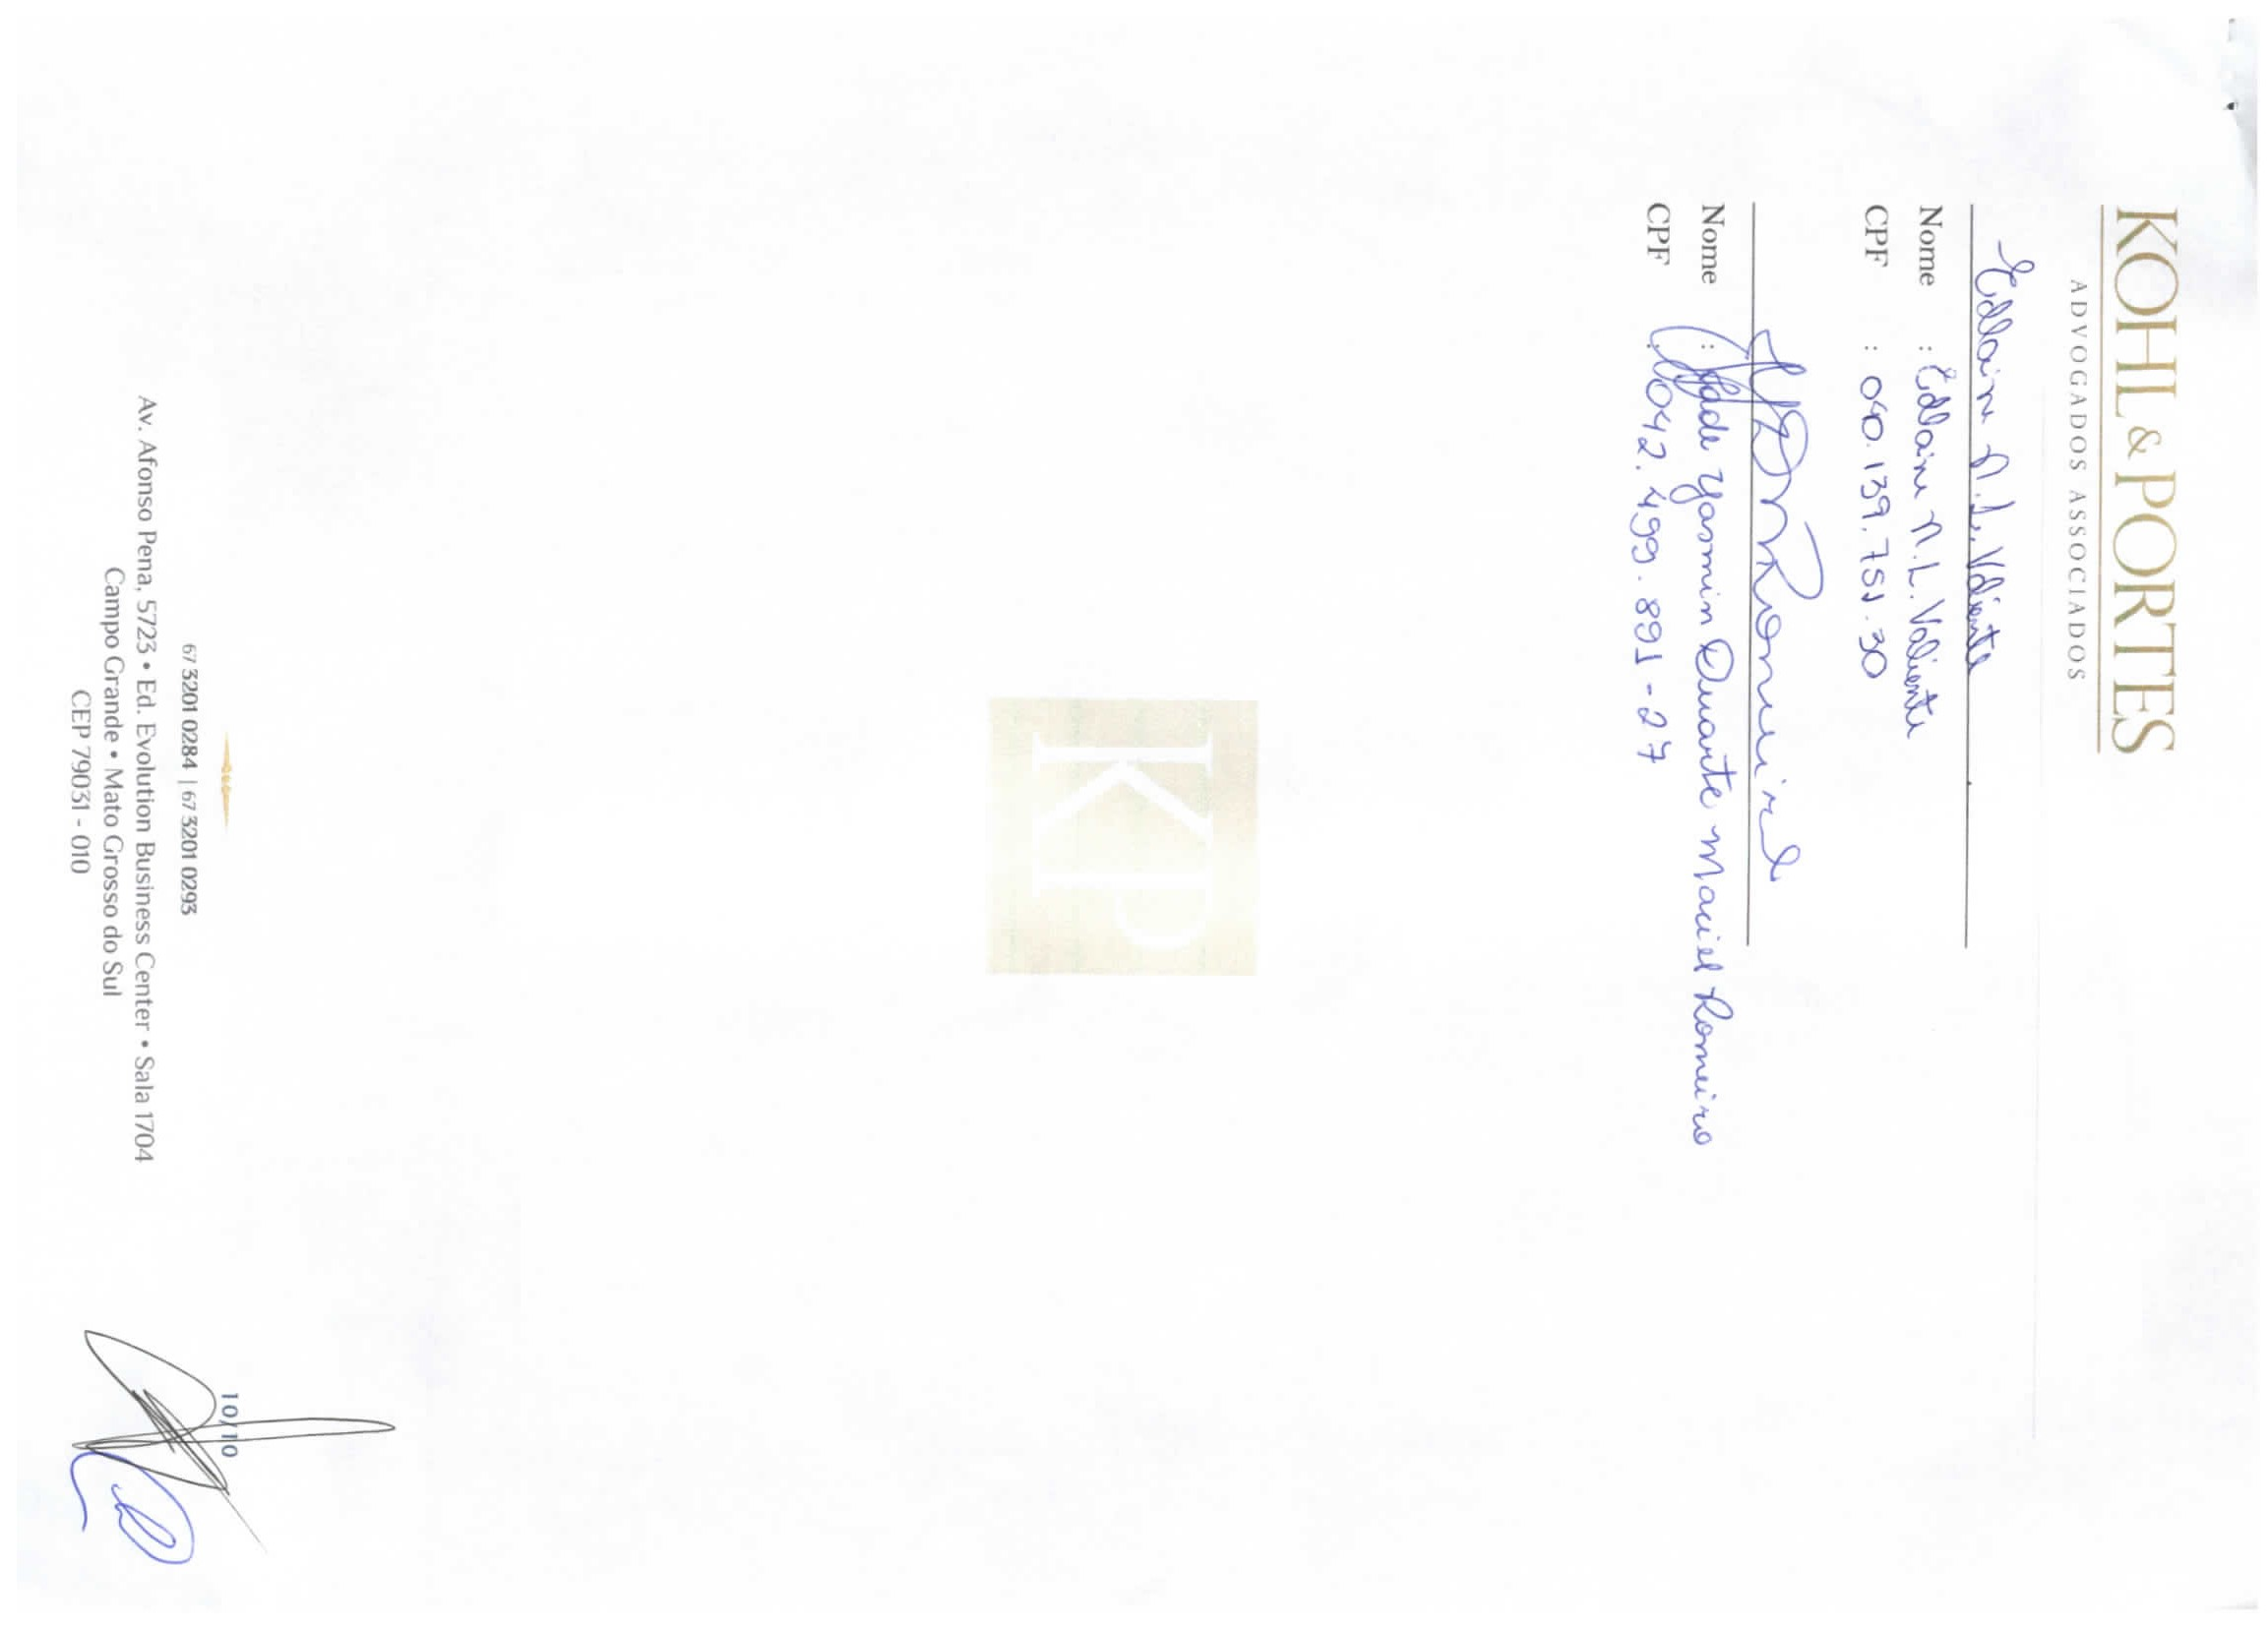 KOHL & PORTES
ADVOGADOS ASSOCIADOS
Edlaine N. L. Valiente
Nome : Edlaine N. L. Valiente
CPF : 040.139.751.30
Romeiro
Nome : Jade Yasmin Duarte Maciel Romeiro
CPF : 042.499.891-27
KP
67 3201 0284 | 67 3201 0293
Av. Afonso Pena, 5723 • Ed. Evolution Business Center • Sala 1704
Campo Grande • Mato Grosso do Sul
CEP 79031 - 010
10/10